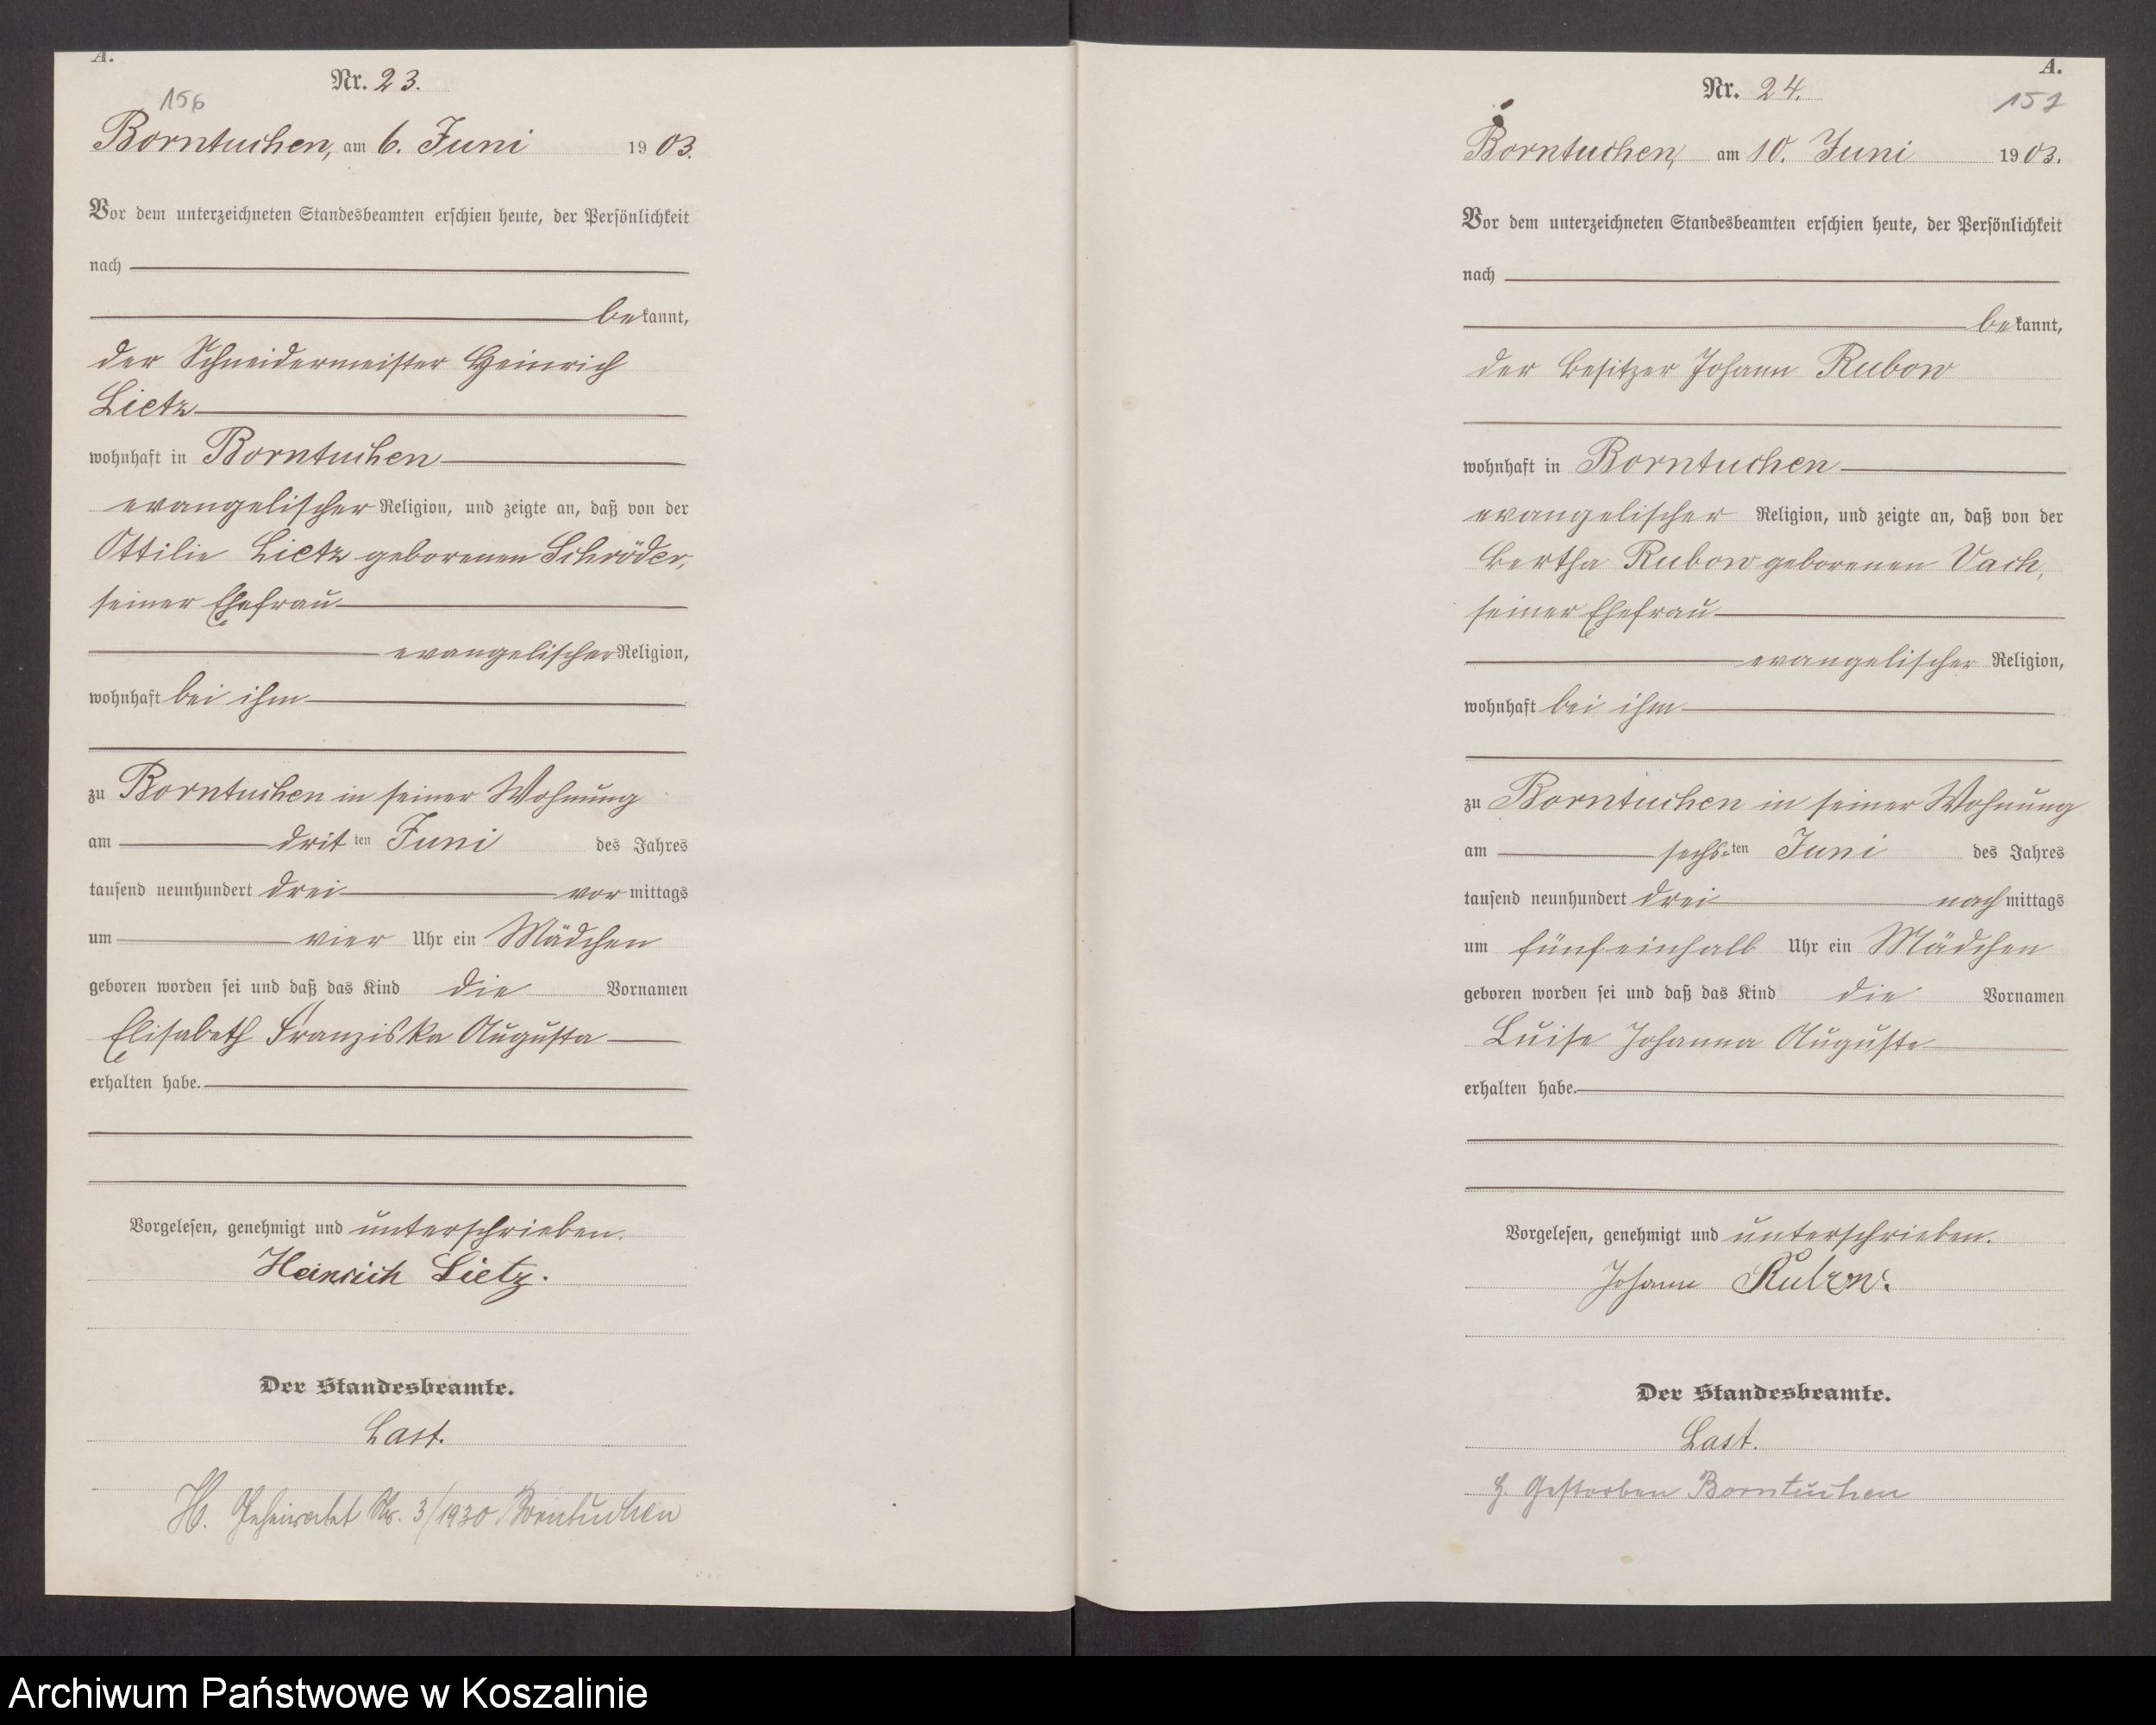 A.
Nr. 23.
156
Borntuchen, am 6. Juni 1903.
Vor dem unterzeichneten Standesbeamten erschien heute, der Persönlichkeit
nach
bekannt,
der Schneidermeister Heinrich
Lietz
wohnhaft in Borntuchen
evangelischer Religion, und zeigte an, daß von der
Ottilie Lietz geborenen Schröder,
seiner Ehefrau
evangelischer Religion,
wohnhaft bei ihm
zu Borntuchen in seiner Wohnung
am dritten Juni des Jahres
tausend neunhundert drei vormittags
um vier Uhr ein Mädchen
geboren worden sei und daß das Kind die Vornamen
Elisabeth Franziska Augusta
erhalten habe.
Vorgelesen, genehmigt und unterschrieben.
Heinrich Lietz.
Der Standesbeamte.
Last.
H. Geheiratet Nr. 3/1930 Borntuchen
A.
Nr. 24.
157
Borntuchen, am 10. Juni 1903.
Vor dem unterzeichneten Standesbeamten erschien heute, der Persönlichkeit
nach
bekannt,
der Besitzer Johann Rubow
wohnhaft in Borntuchen
evangelischer Religion, und zeigte an, daß von der
Bertha Rubow geborenen Vach,
seiner Ehefrau
evangelischer Religion,
wohnhaft bei ihm
zu Borntuchen in seiner Wohnung
am sechsten Juni des Jahres
tausend neunhundert drei nachmittags
um fünfeinhalb Uhr ein Mädchen
geboren worden sei und daß das Kind die Vornamen
Luise Johanna Auguste
erhalten habe.
Vorgelesen, genehmigt und unterschrieben.
Johann Rubow.
Der Standesbeamte.
Last.
Gestorben Borntuchen
Archiwum Państwowe w Koszalinie